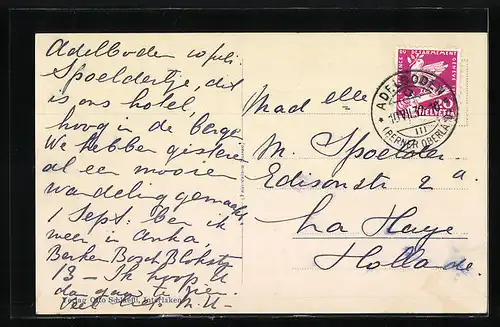 Adelboden 10 juli
Spoeldertje, dit
is ons hotel,
hoog in de bergen
We hebben gisteren
al een mooie
wandeling gemaakt.
1 Sept. ben ik
weer in
Berken Bosch Blokstr
13 – Ik hoop U
dan te zien
Verlag Otto Interlaken
Mad elle
M. Spoelder
Edisonstr 2a.
La Haye
Hollande.
DESARMEMENT
GENEVE
HELVETIA
ADELBODEN
(BERNER OBERLAND)